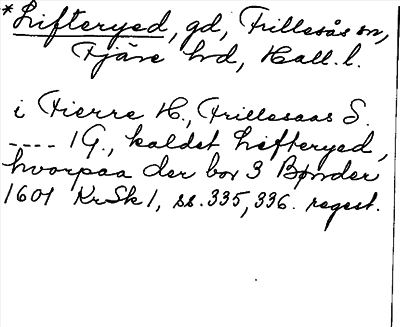 *Lifteryed, gd, Frillesås sn,
Fjäre hd, Hall. l.
i Fierre H., Frillesaas S.
---- 1 G., kaldet Lifteryed,
hvorpaa der bor 3 Bønder
1601 KrSk 1, ss. 335, 336. regest.